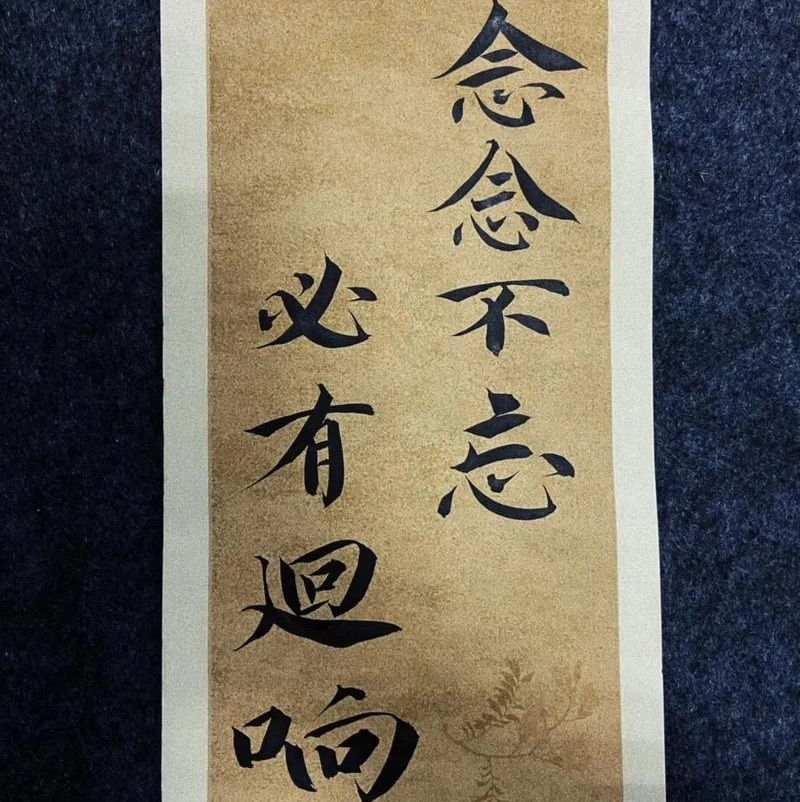 念念不忘
必有迴响